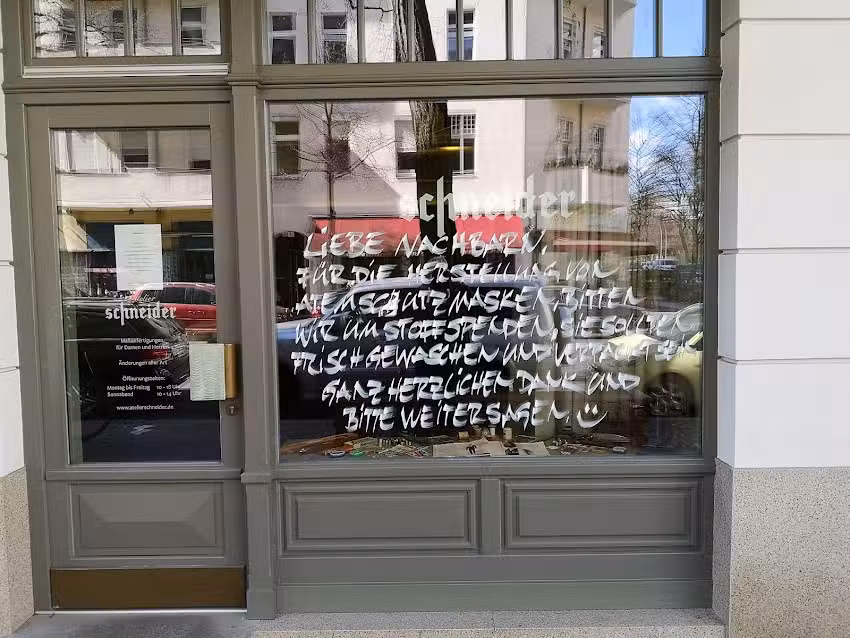 schneider
LIEBE NACHBARN,
FÜR DIE HERSTELLUNG VON
ATEMSCHUTZMASKEN, BITTEN
WIR UM STOFFSPENDEN, SIE SOLLTEN
FRISCH GEWASCHEN UND VERPACKT SEIN
GANZ HERZLICHEN DANK UND
BITTE WEITERSAGEN
atelier
schneider
Maßanfertigungen
für Damen und Herren
Änderungen aller Art
Öffnungszeiten:
Montag bis Freitag 10 - 18 Uhr
Sonnabend 10 - 14 Uhr
www.atelierschneider.de